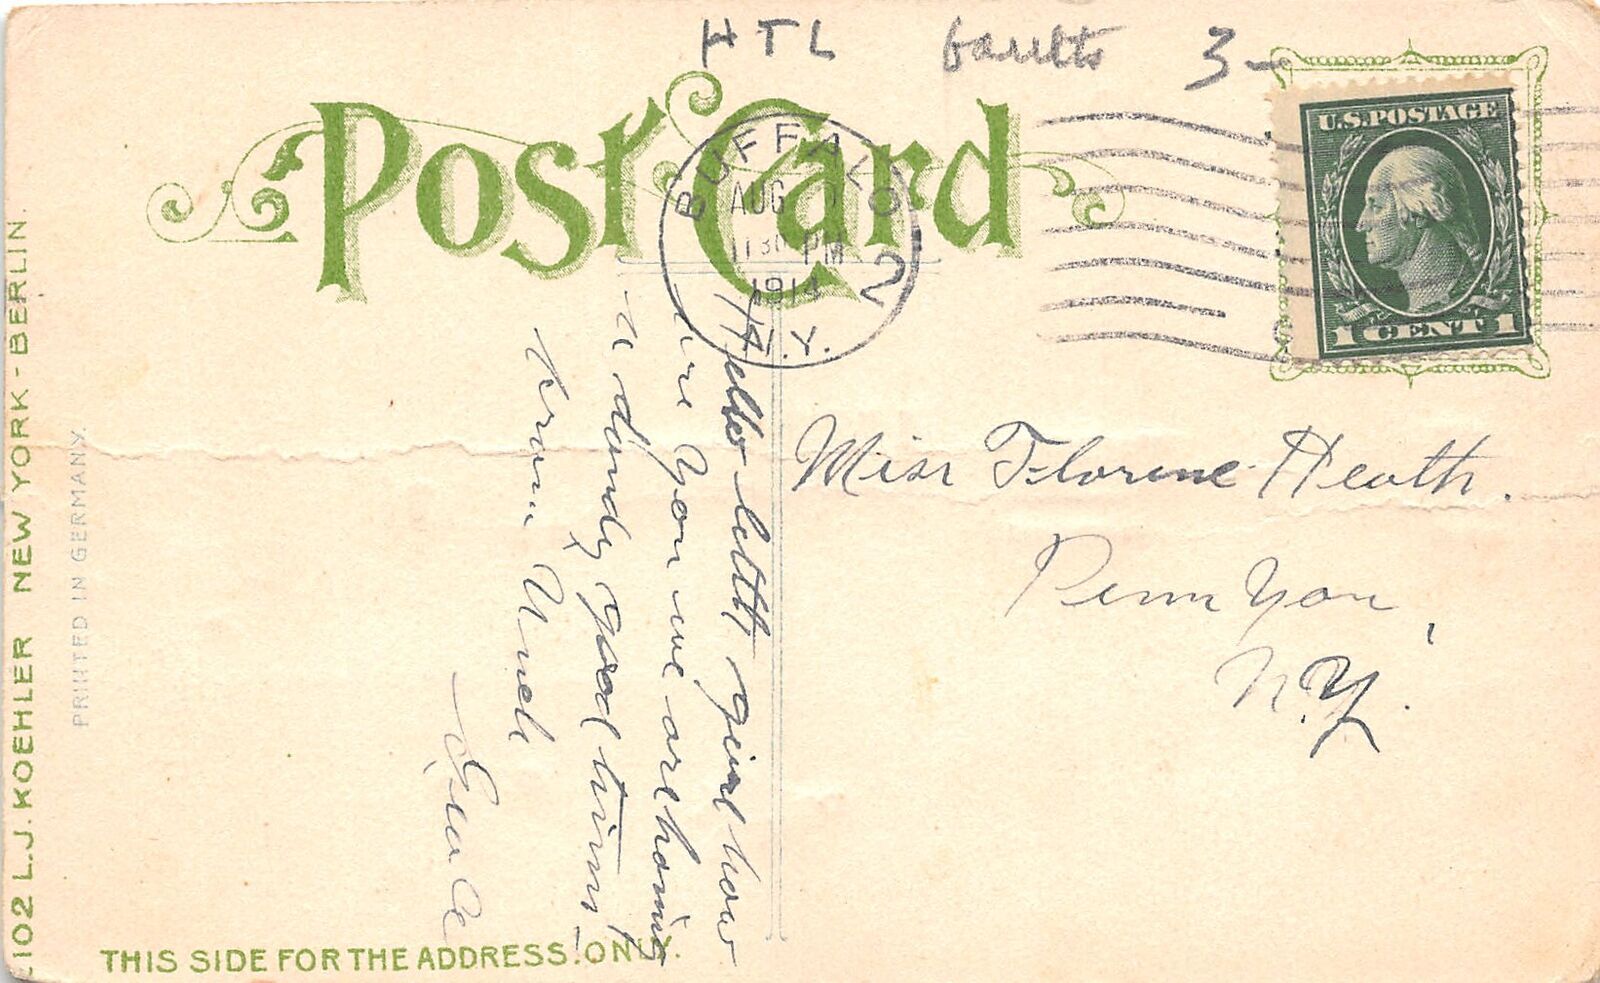 HTL faults 3-
POST CARD
U.S. POSTAGE
1 CENT 1
BUFFALO
AUG
11 30 PM
1914
N.Y.
2
Hello little girl how
are you we are having
a dandy good time
From Uncle
Miss Florence Heath.
Penn Yan,
N.Y.
THIS SIDE FOR THE ADDRESS ONLY.
PRINTED IN GERMANY.
2102 L.J. KOEHLER NEW YORK - BERLIN.